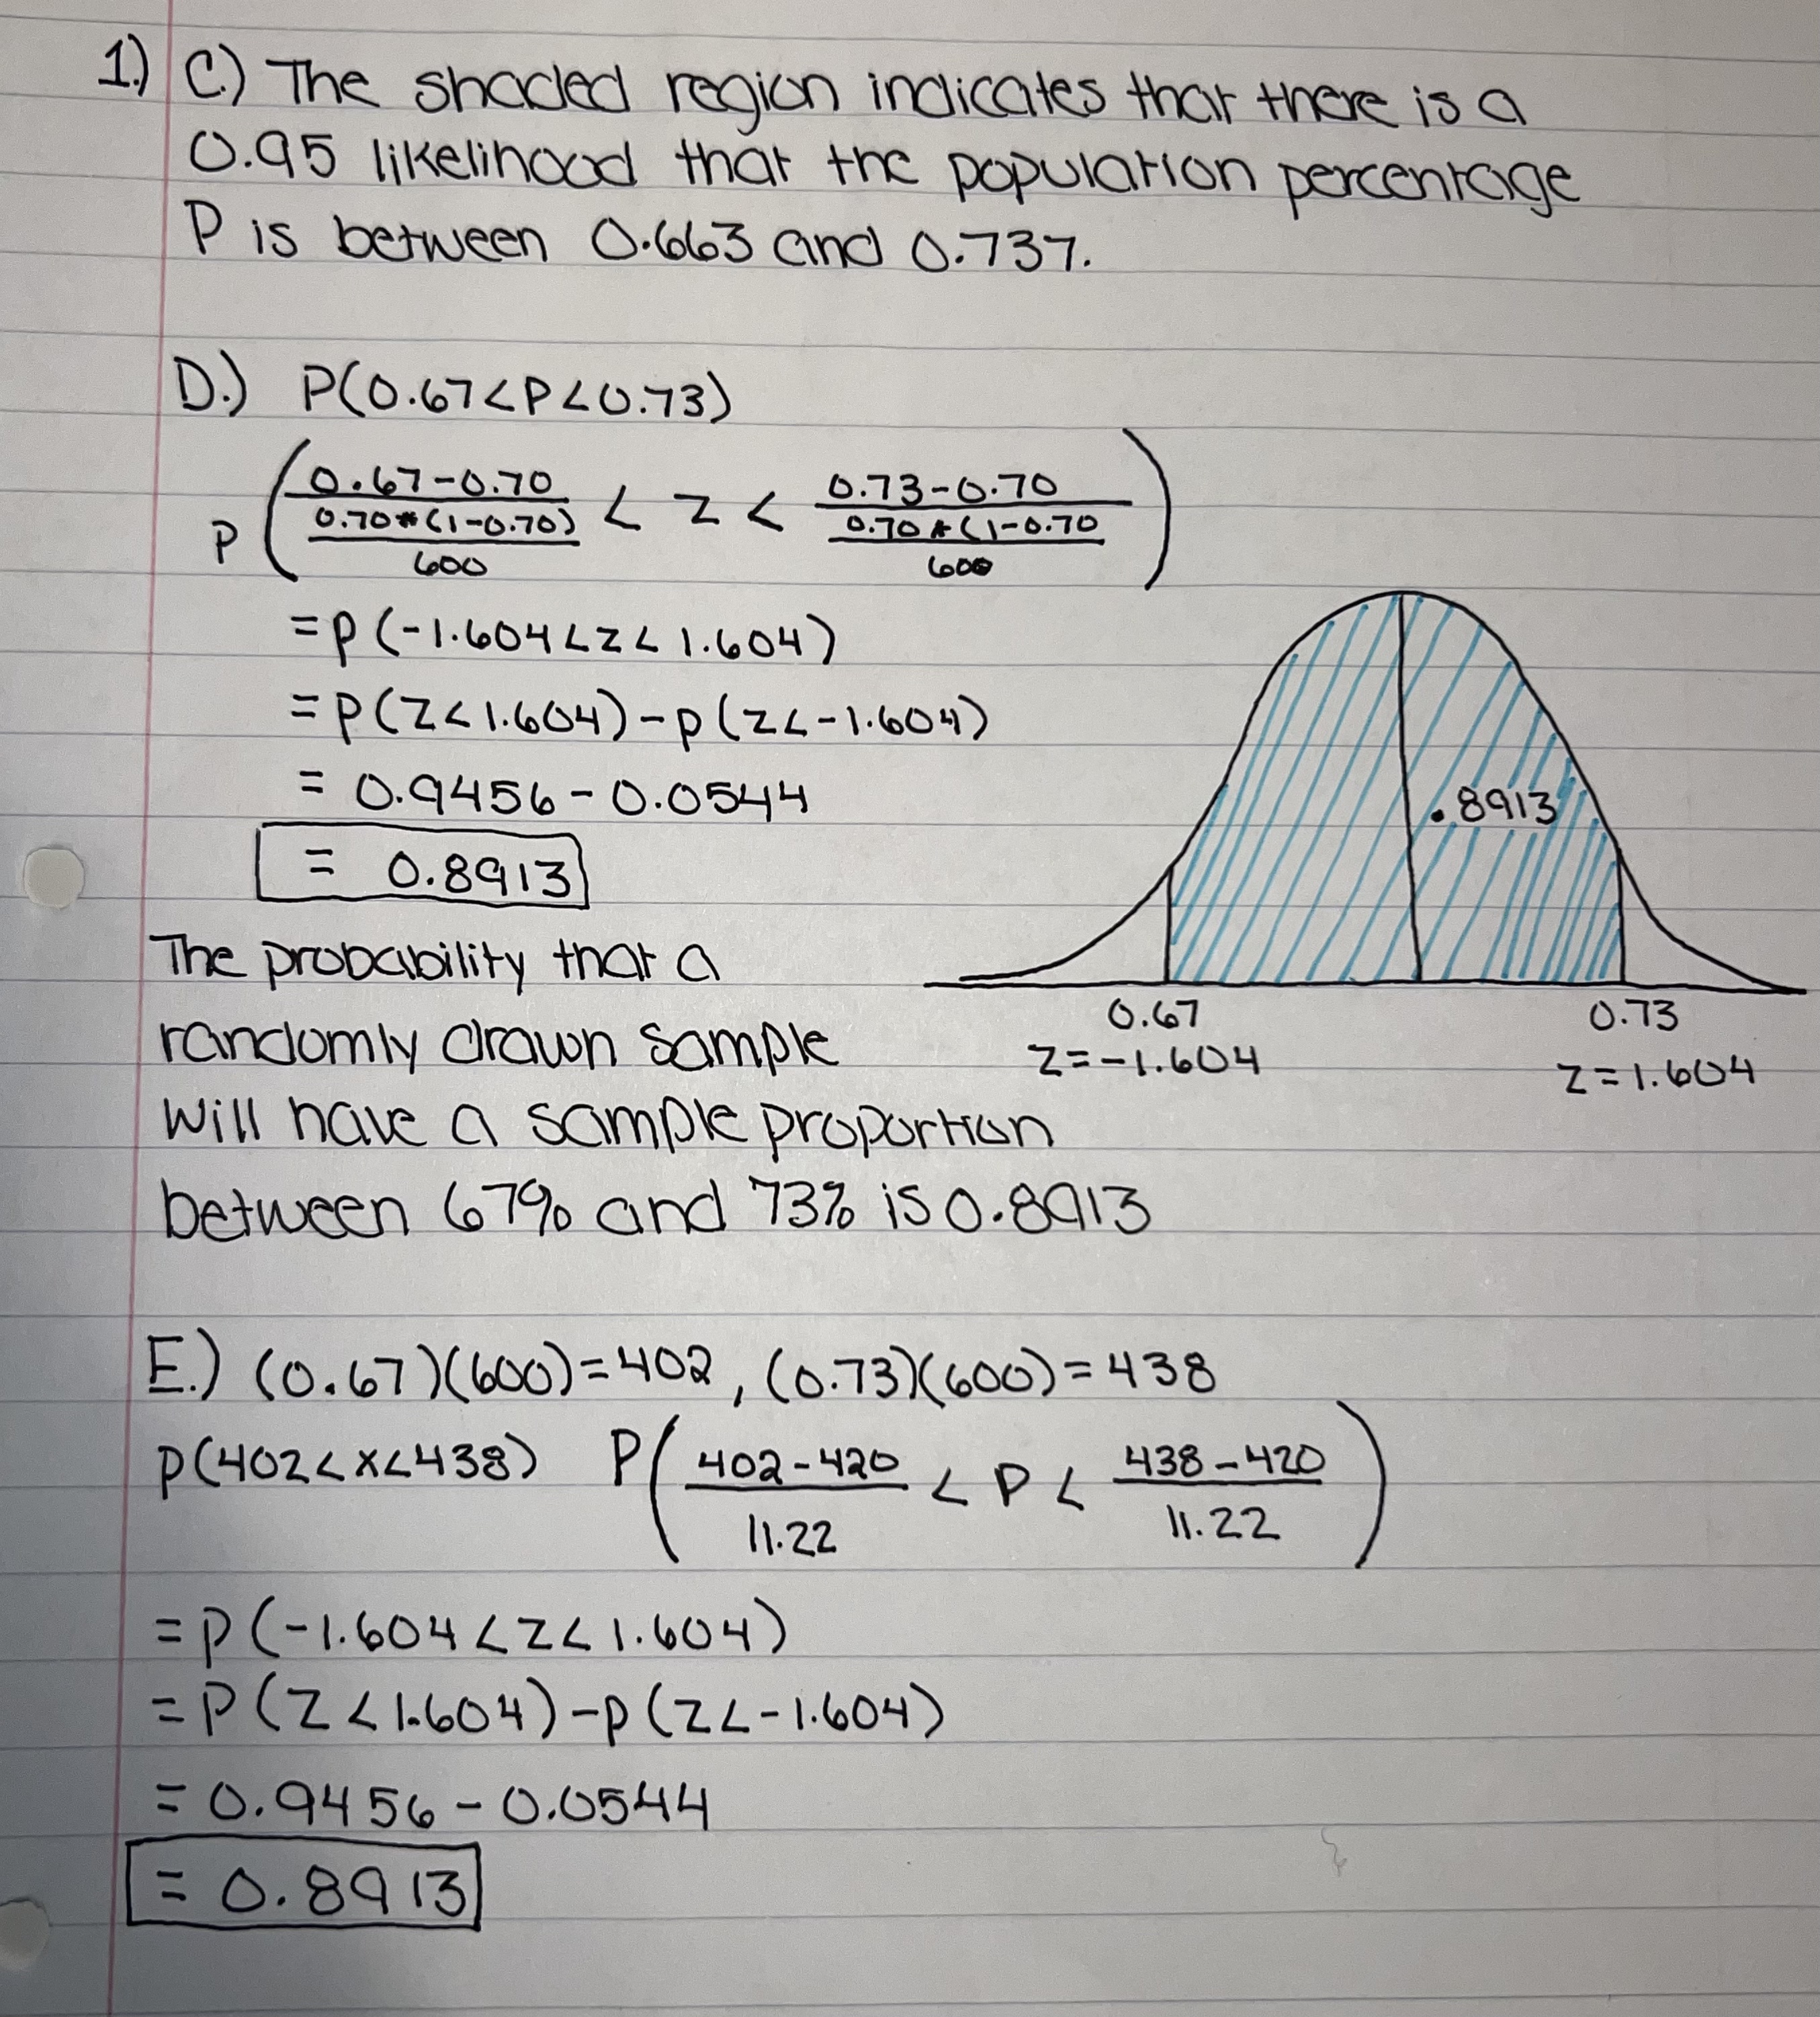 1.) C.) The shaded region indicates that there is a
0.95 likelihood that the population percentage
P is between 0.663 and 0.737.
D.) P(0.67<P<0.73)
P ( 0.67-0.70 / 0.70*(1-0.70) / 600 < z < 0.73-0.70 / 0.70*(1-0.70 / 600 )
=p(-1.604<z<1.604)
=p(Z<1.604)-p(z<-1.604)
= 0.9456-0.0544
= 0.8913
.8913
0.67
z=-1.604
0.73
z=1.604
The probability that a
randomly drawn sample
will have a sample proportion
between 67% and 73% is 0.8913
E.) (0.67)(600)=402, (0.73)(600)=438
p(402<x<438) P( 402-420 / 11.22 < P < 438-420 / 11.22 )
=p(-1.604<z<1.604)
=P(Z<1.604)-p(z<-1.604)
=0.9456-0.0544
=0.8913